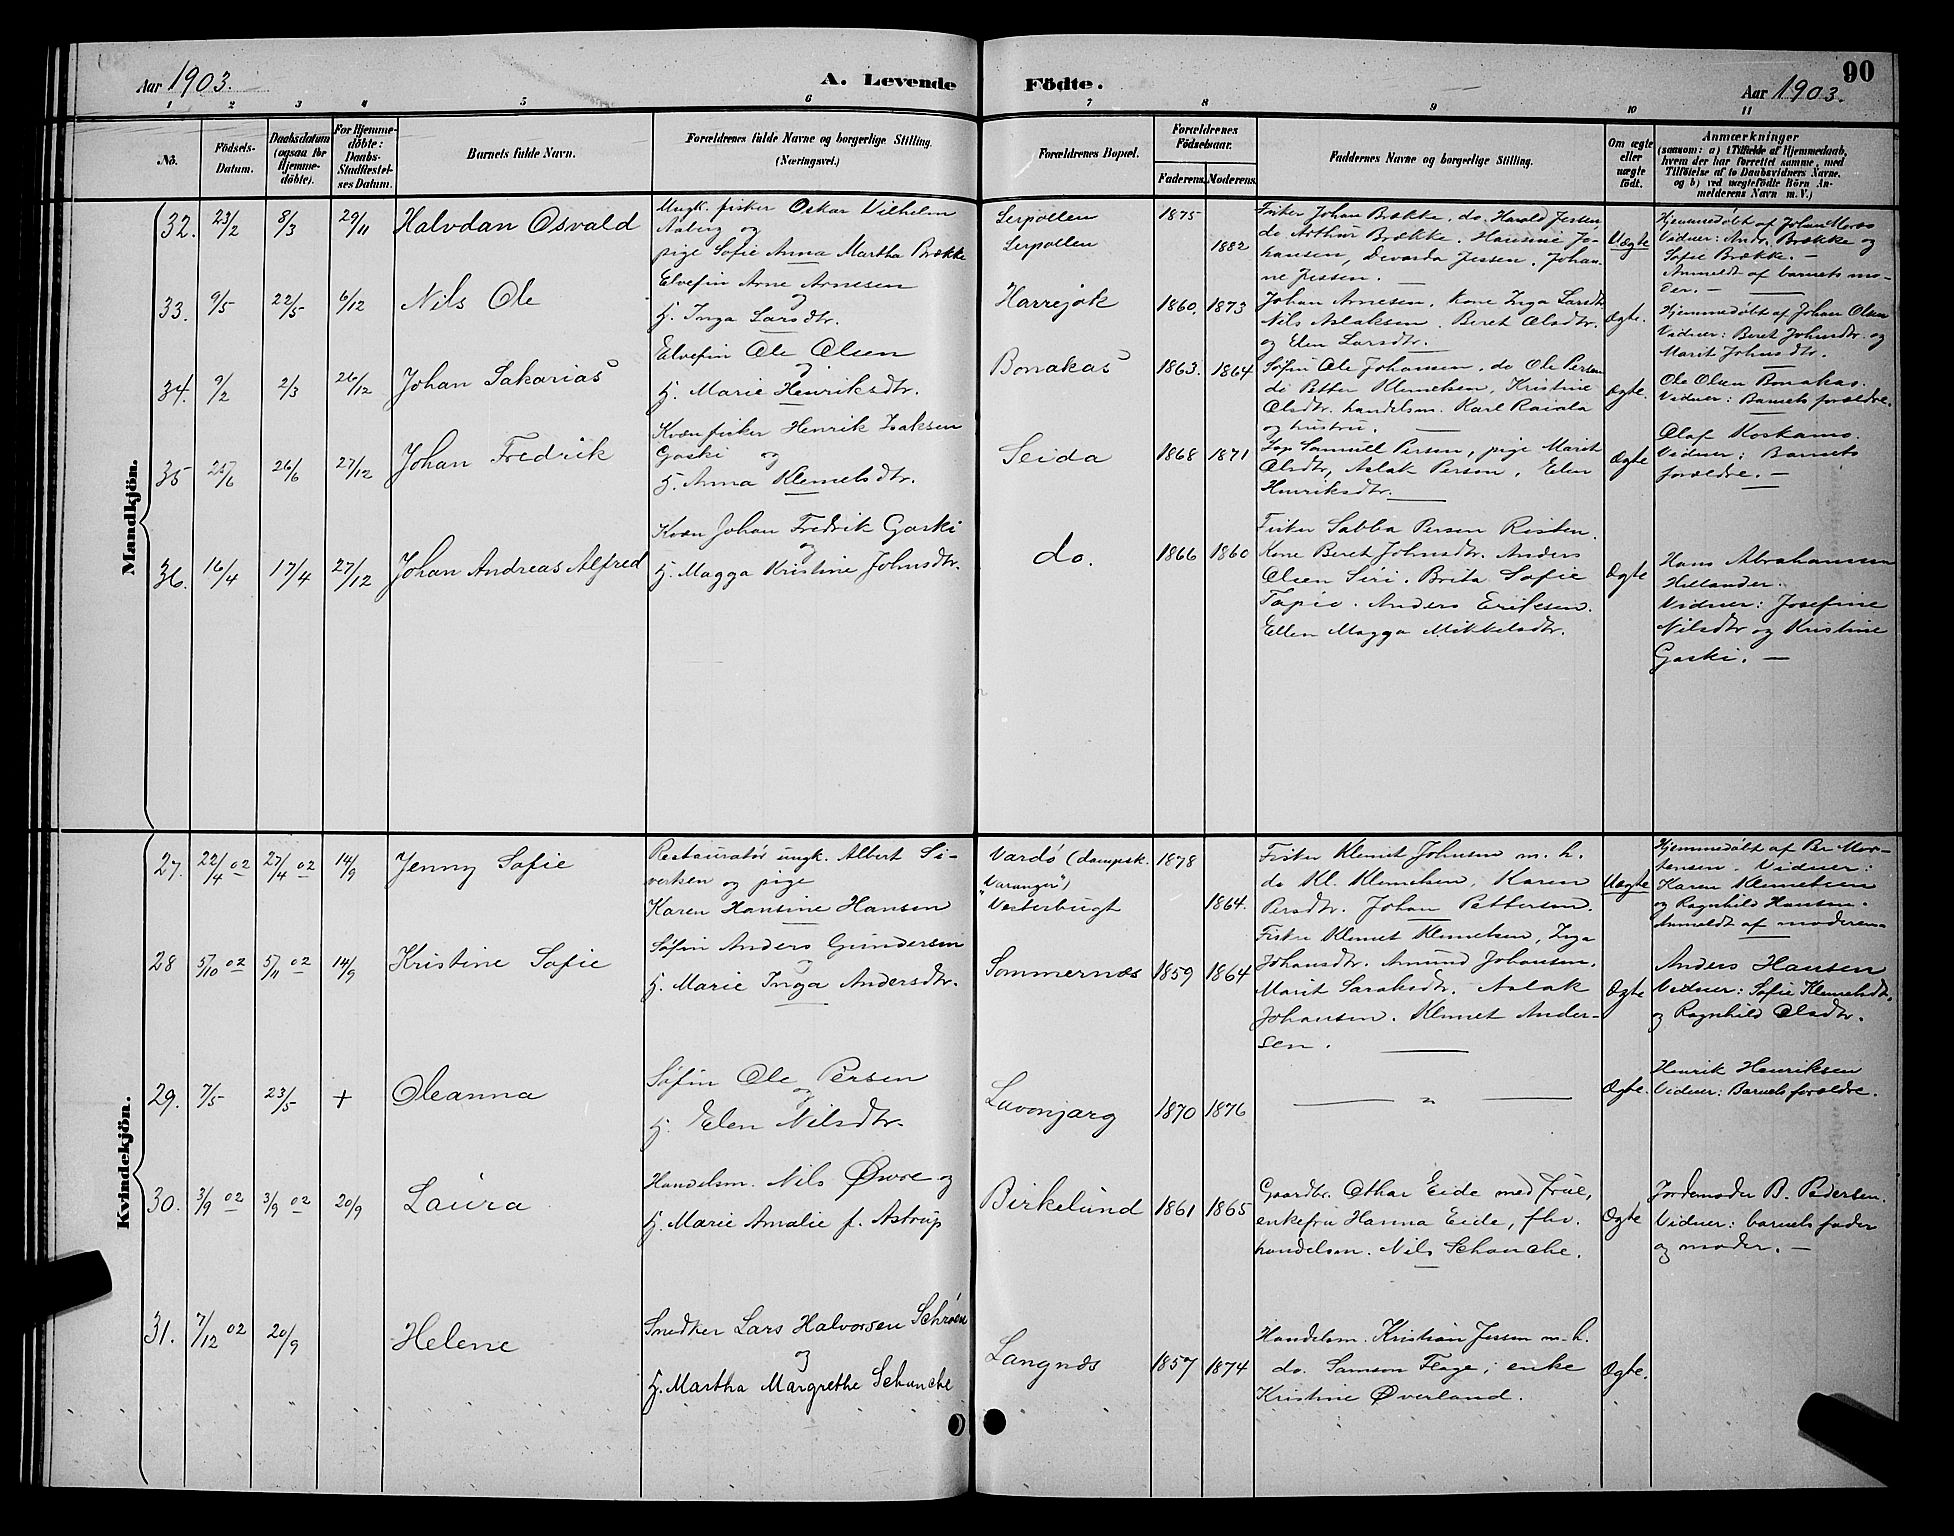 Aar 1903.
A. Levende
Födte.
90
Aar 1903.
1 2 3 4 5 6 7 8 9 10 11
No.
Födsels-
Datum.
Daabsdatum
(ogsaa for
Hjemme-
döbte).
For Hjemme-
döbte:
Daabs-
Stadfæstel-
ses Datum.
Barnets fulde Navn.
Forældrenes fulde Navne og borgerlige Stilling.
(Næringsvei.)
Forældrenes Bopæl.
Forældrenes
Födselsaar.
Faderens. Moderens.
Faddernes Navne og borgerlige Stilling.
Om ægte
eller
uægte
født.
Anmærkninger
(saasom: a) i Tilfælde af Hjemmedaab,
hvem der har forrettet samme, med
Tilföielse af to Daabsvidners Navne.
og b) ved uægtefödte Börn An-
melderens Navn m. V.)
Mandkjön.
32. 23/2 8/3 29/11 Halvdan Osvald
Ungk. fisker Oskar Vilhelm
og
pige Sofie Anna Martha Brække
Serpollen 1875
Serpollen 1882
Fisker Johan Brække, do. Harald Jessen
do Arthur Brække. Hansine Jo-
hansen, Jessen. Johan-
ne Jessen.
Uægte
Hjemmedøbt af Johan
Vidner: Andr. Brække og
Sofie Brække. —
Anmeldt af barnets mo-
der. —
33. 9/5 22/5 6/12 Nils Ole
Elvefin Arne Arnesen
og
H. Inga Larsdtr.
Harrejok 1860. 1873
Johan Arnesen. Kone Inga Larsdtr
Nils Aslaksen. Beret Olsdtr.
og Elen Larsdtr.
Ægte.
Hjemmedøbt af Johan Olsen
Vidner: Beret Johnsdtr. og
Marit Johnsdtr.
34. 9/2 2/3 26/12 Johan Sakarias
Elvefin Ole Olsen
og
H. Marie Henriksdtr.
Bonakas 1863. 1864
Søfin Ole Johansen, do Ole Persen
do Petter Klemetsen, Kristine
Olsdtr. handelsm. Karl Raiala
og hustru.
Ægte.
Ole Olsen Bonakas.
Vidner: Barnets forældre.
35 25/6 26/6 27/12 Johan Fredrik
Kvæn fisker Henrik Isaksen
Gaski og
H. Anna Klemetsdtr.
Seida 1868 1871
Samuel Persen, pige Marit
Olsdtr, Aslak Persen, Elen
Henriksdtr.
Ægte
Olaf Koskamo.
Vidner: Barnets
forældre. —
36. 16/4 17/4 27/12 Johan Andreas Alfred
Kvæn Johan Fredrik Gaski
og
H. Magga Kristine Johnsdtr.
do. 1866 1860
Fisker Sabba Persen Risten.
Kone Beret Johnsdtr. Anders
Olsen Siri. Brita Sofie
Tapio. Anders Eriksen.
Ellen Magga Mikkelsdtr.
Ægte
Hans Abrahamsen
Hellander.
Vidner: Josefine
Nilsdtr og Kristine
Gaski. —
Kvindekjön.
27. 22/4 02 27/4 02 14/9 Jenny Sofie
Restauratør ungk. Albert Si-
vertsen og pige
Karen Hansine Hansen
Vardø (dampsk. 1878
"Varanger")
Vesterbugt 1864.
Fisker Klemet Johnsen m. h.
do Kl. Klemetsen, Karen
Persdtr. Johan Pettersen.
Uægte
Hjemmedøbt af Per Mor-
tensen. Vidner:
Karen Klemetsen
og Ragnhild Hansen.
Anmeldt af moderen.
28 5/10 02 5/11 02 14/9 Kristine Sofie
Søfin Anders Gundersen
og
H. Marie Inga Andersdtr.
Sommernæs 1859 1864
Fisker Klemet Klemetsen, Inga
Johansdtr. Amund Johansen.
Marit Saraksdtr. Aslak
Johansen. Klemet Ander-
sen.
Ægte
Anders Hansen
Vidner: Sofie Klemetsdtr.
og Ragnhild Olsdtr.
29. 7/5 23/5 + Oleanna
Søfin Ole Persen
og
H. Elen Nilsdtr.
Luvonjarg 1870 1876
— " —
Ægte.
Henrik Henriksen
Vidner: Barnets forældre.
30. 3/9 02 3/9 02 20/9 Laura
Handelsm. Nils Øvre og
H. Marie Amalie f. Astrup
Birkelund 1861 1865
Gaardbr. Othar Eide med frue,
enkefru Hanna Eide, fhv.
handelsm. Nils Schanche.
Ægte
Jordemoder B. Pedersen.
Vidner: barnets fader
og moder. —
31. 7/12 02 20/9 Helene
Snedker Lars Halvorsen Schrøen
og
H. Martha Margrethe Schanche
Langnæs 1857 1874
Handelsm. Kristian Jessen m. h.
do. Samson Flage; enke
Kristine Øverland.
Ægte.